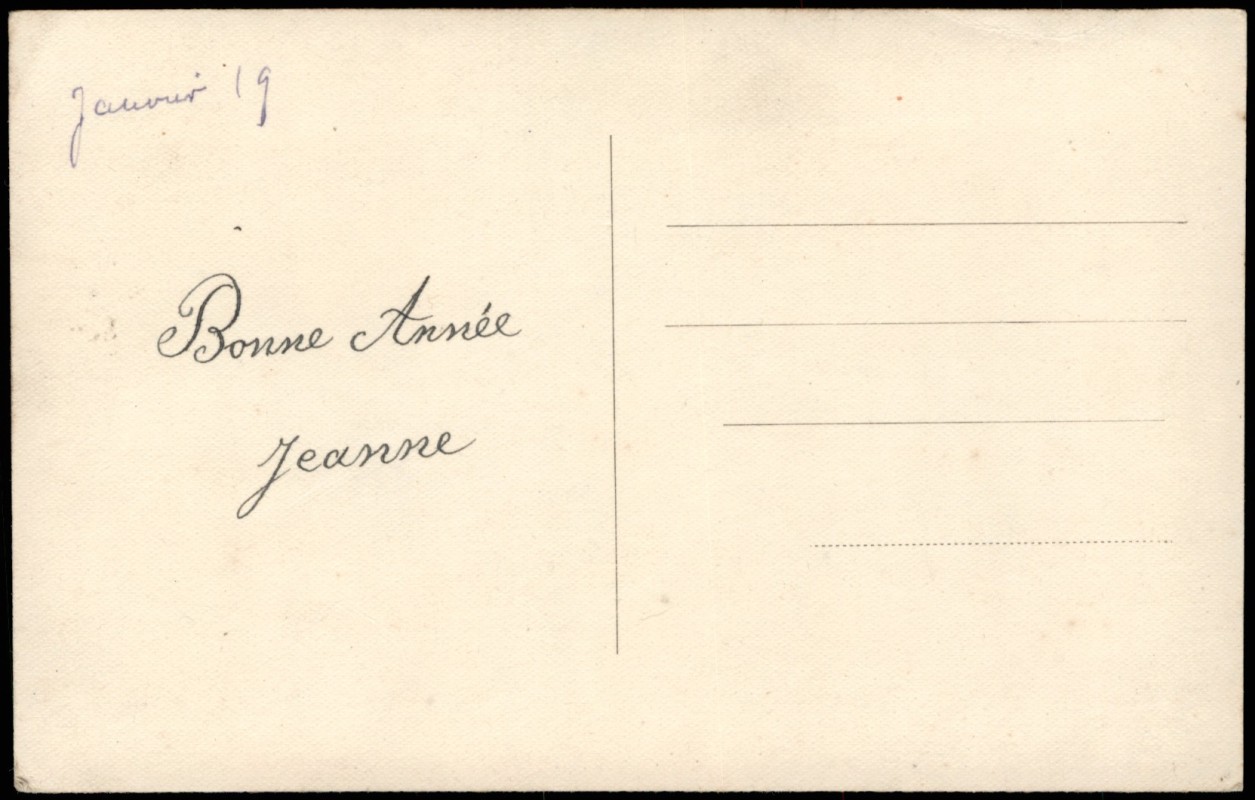 Janvier 19
Bonne Année
Jeanne